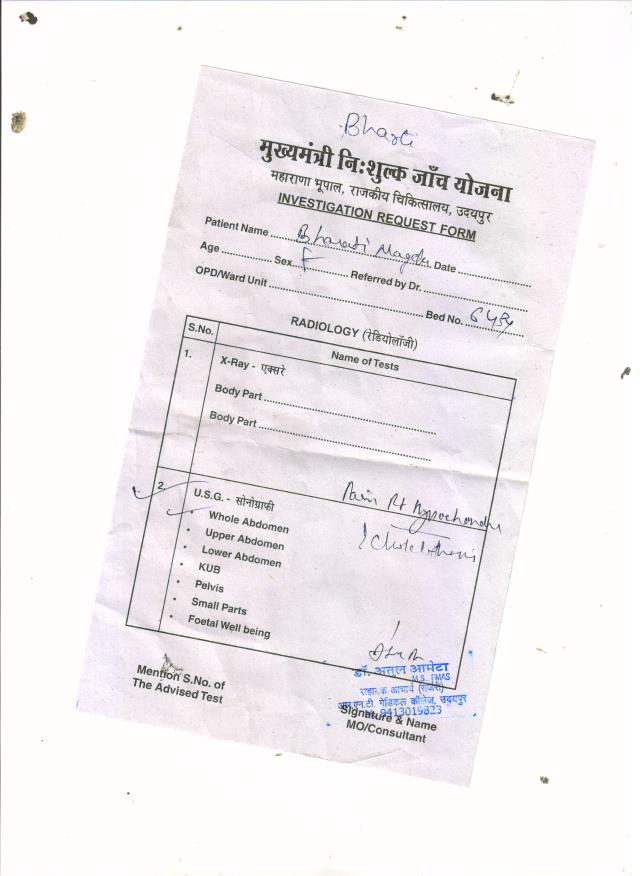 Bharti
मुख्यमंत्री नि:शुल्क जाँच योजना
महाराणा भूपाल, राजकीय चिकित्सालय, उदयपुर
INVESTIGATION REQUEST FORM
Patient Name Bharati Date
Age Sex F Referred by Dr.
OPD/Ward Unit Bed No.
RADIOLOGY (रेडियोलॉजी)
S.No. Name of Tests
1. X-Ray - एक्सरे
Body Part
Body Part
2. U.S.G. - सोनोग्राफी
Pain Rt Hypochondri
• Whole Abdomen
? Cholelithiasis
• Upper Abdomen
• Lower Abdomen
• KUB
• Pelvis
• Small Parts
• Foetal Well being
डॉ. अतुल आमेटा
M.S. FMAS
सहायक आचार्य (सर्जरी)
आर.एन.टी. मेडिकल कॉलेज, उदयपुर
9413019823
Mention S.No. of
The Advised Test
Signature & Name
MO/Consultant